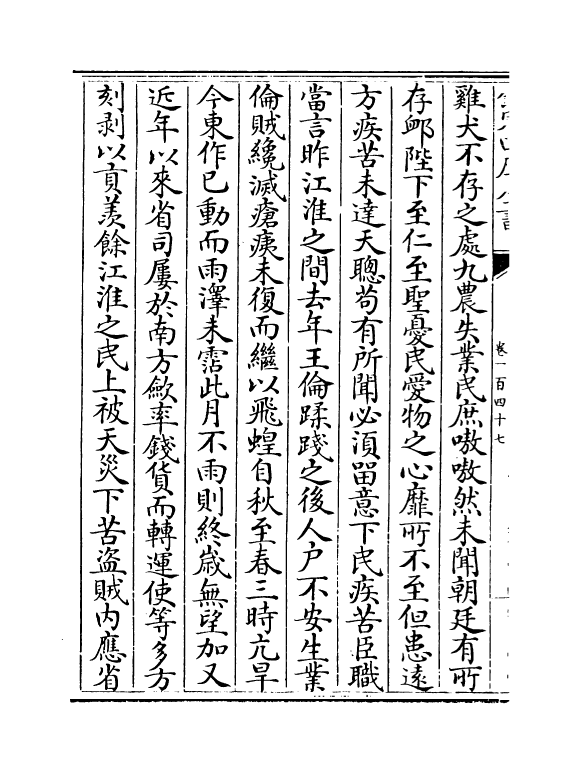 雞犬不存之處九農失業民庶嗷嗷然未聞朝廷有所
存䘏陛下至仁至聖憂民愛物之心靡所不至但患遠
方疾苦未達天聰苟有所聞必須留意下民疾苦臣職
當言昨江淮之間去年王倫蹂踐之後人户不安生業
倫賊纔滅瘡痍未復而繼以飛蝗自秋至春三時亢旱
今東作已動而雨澤未霑此月不雨則終歲無望加又
近年以來省司屢於南方歛率錢貨而轉運使等多方
刻剥以貢羡餘江淮之民上被天災下苦盜賊内應省
卷一百四十七